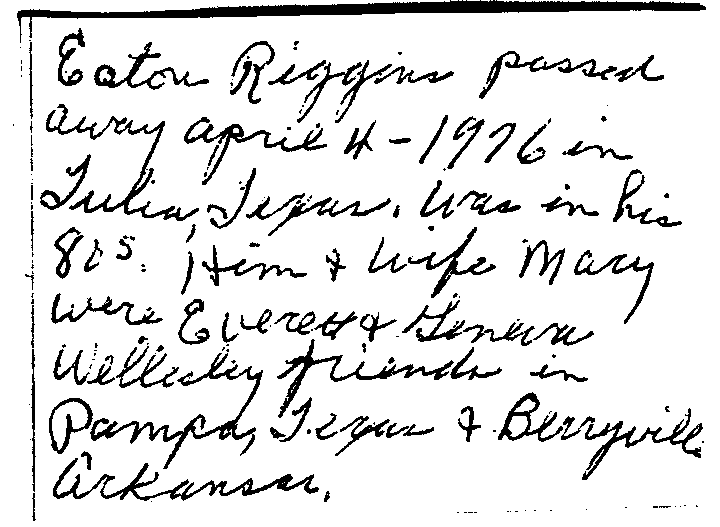 Eaton Riggins passed
away April 4 - 1976 in
Tulia, Texas. Was in his
80s. Him & Wife Mary
were Everett & Geneva
Wellesley friends in
Pampa, Texas & Berryville
Arkansas.